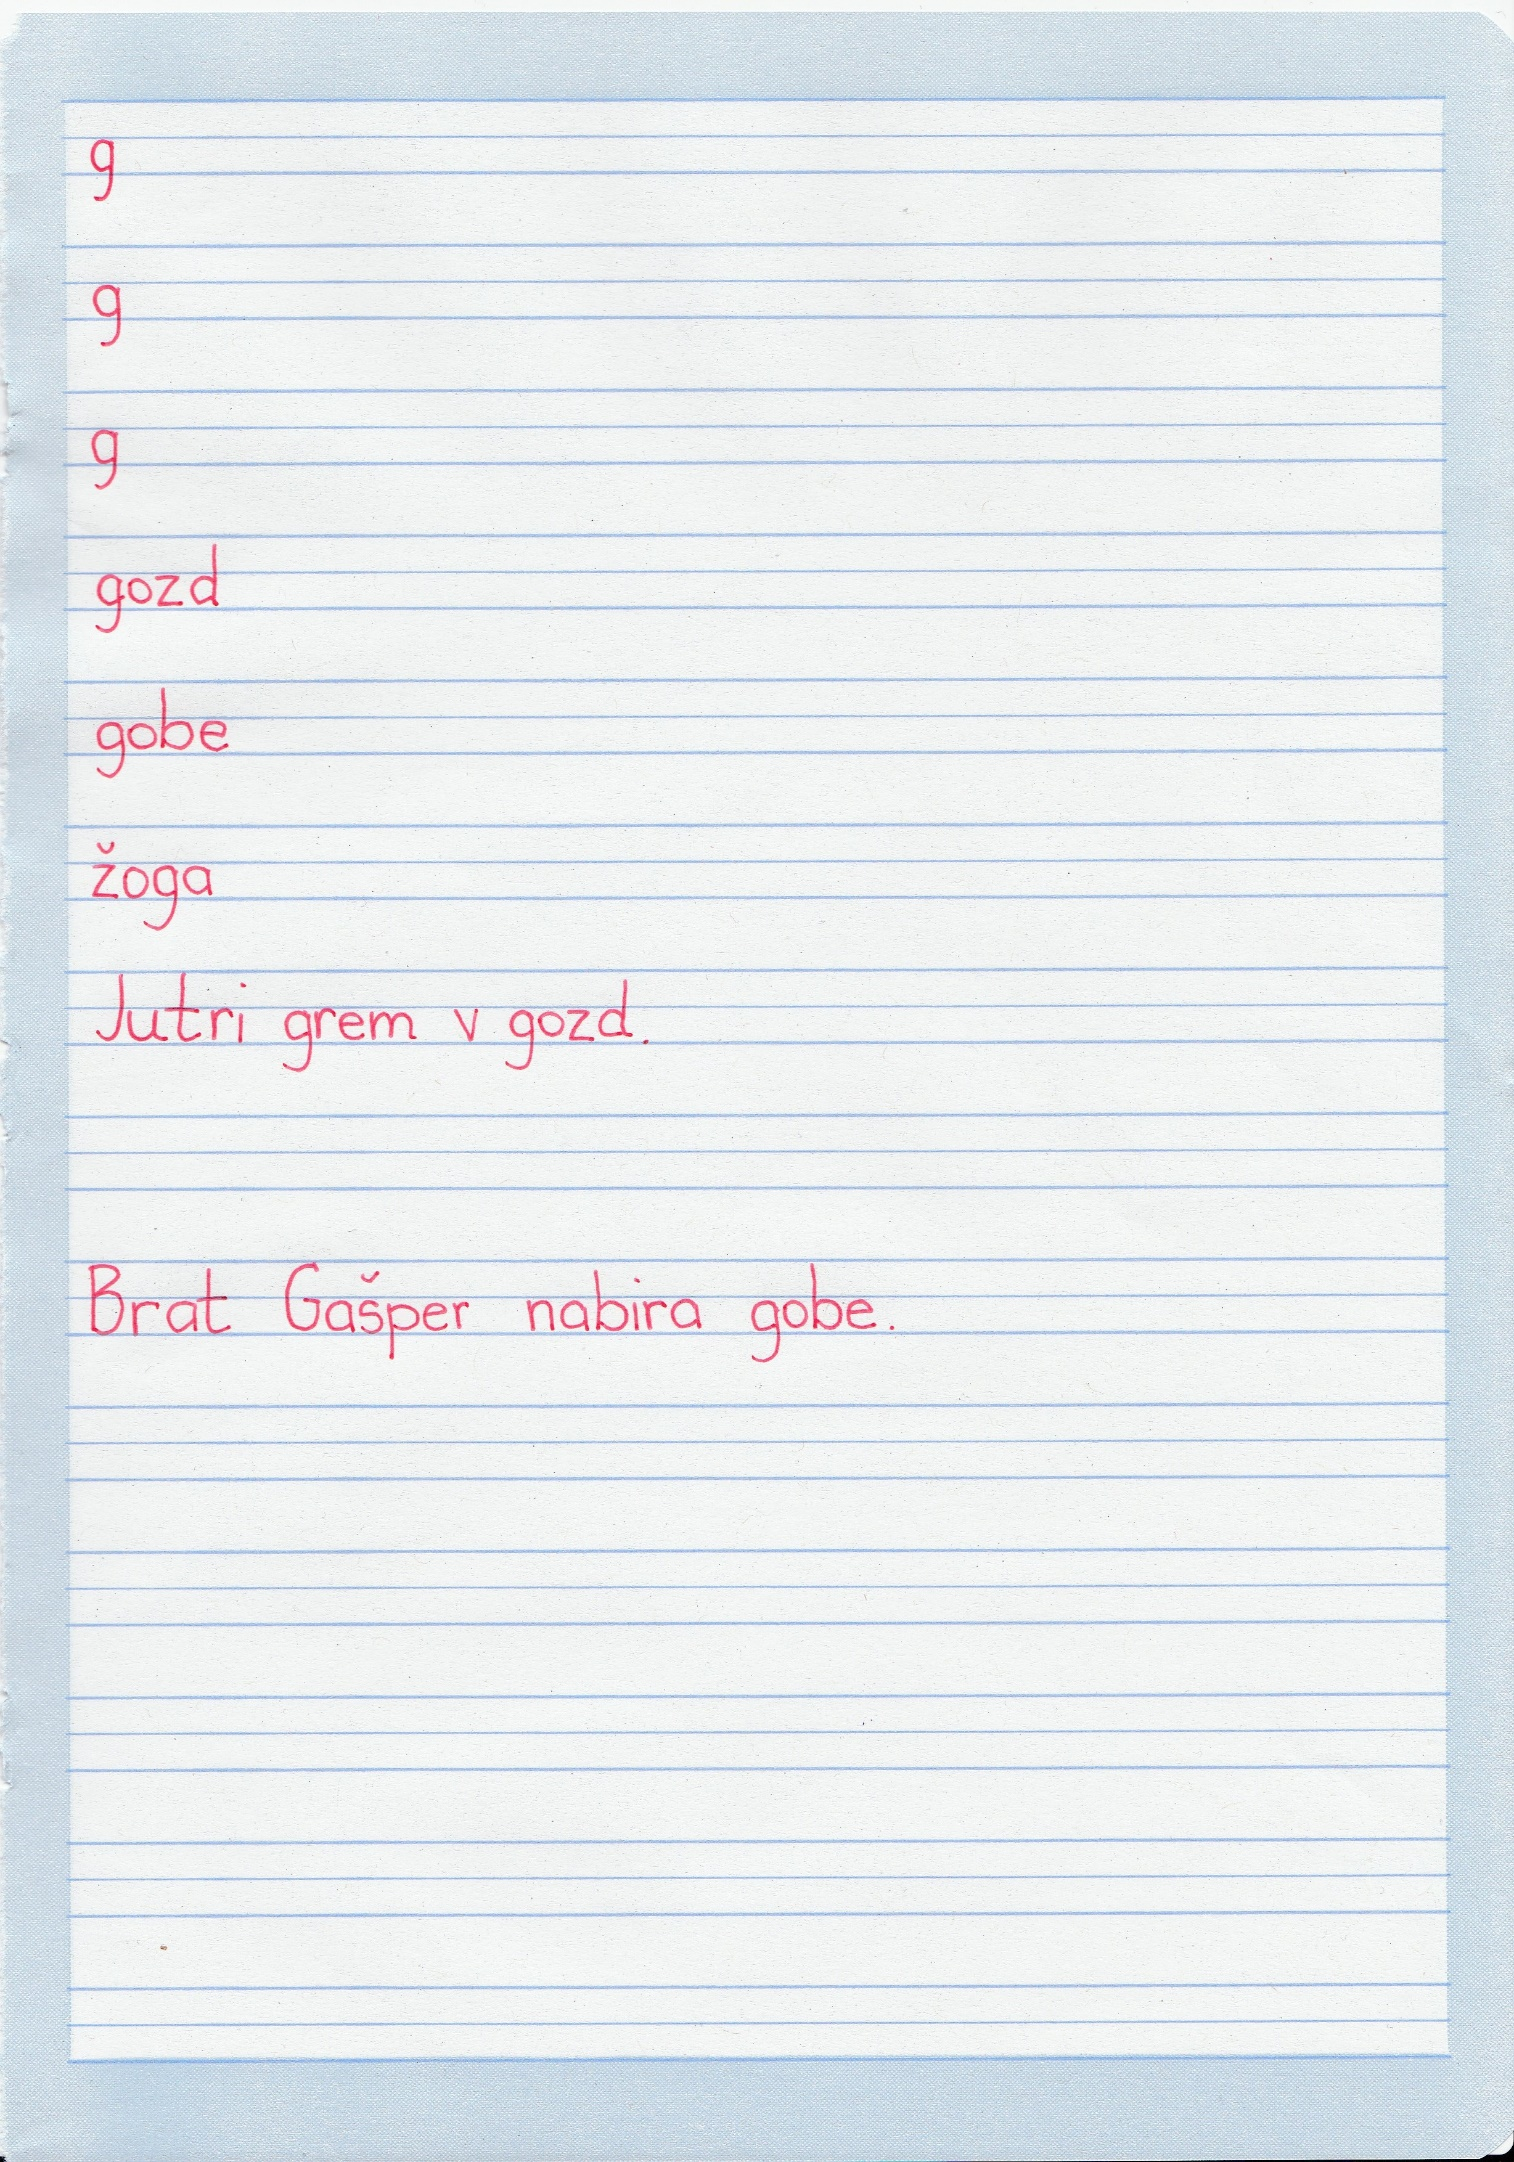 g
g
g
gozd
gobe
žoga
Jutri grem v gozd.
Brat Gašper nabira gobe.